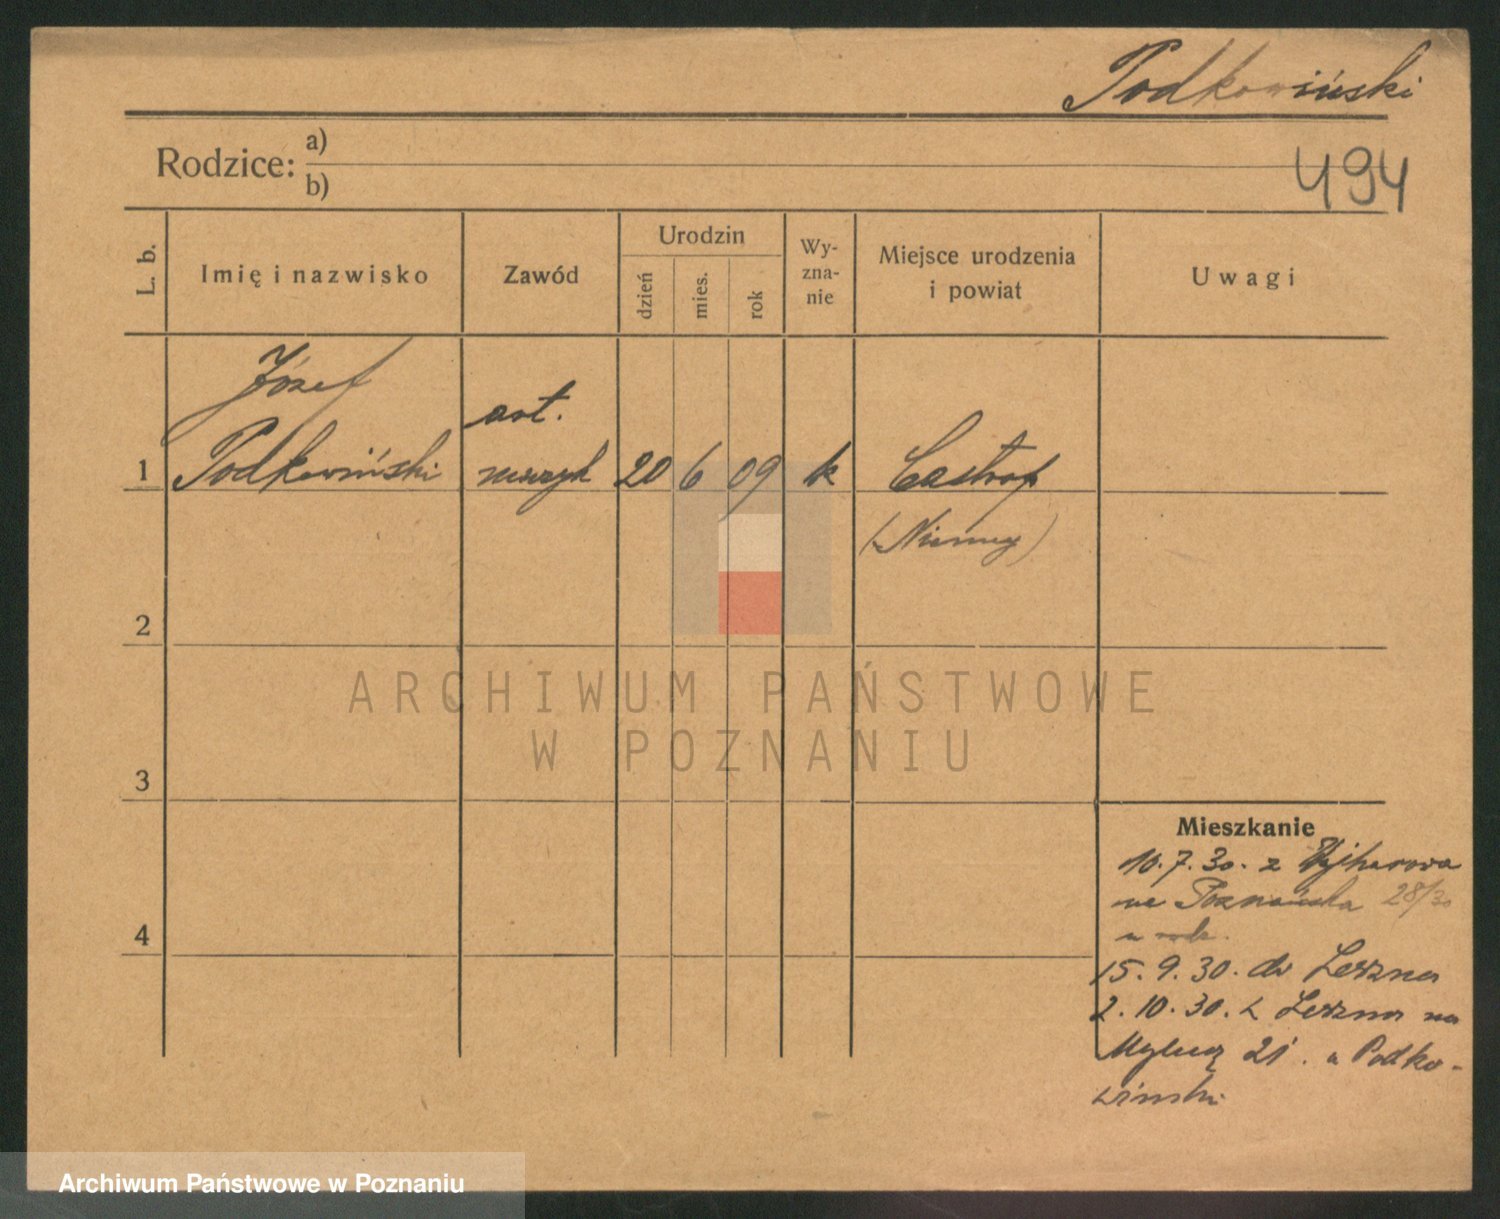 Podkowiński
494
Rodzice: a)
b)
L. b.
Imię i nazwisko
Zawód
Urodzin
dzień
mies.
rok
Wy-
zna-
nie
Miejsce urodzenia
i powiat
Uwagi
1
Józef
Podkowiński
art.
muzyk
20
6
09
k
Castrop
(Niemcy)
2
3
4
Mieszkanie
10. 7. 30. z Wejherowa
na Poznańska 28/30
15. 9. 30. do Leszna
2. 10. 30. z Leszna na
21. u Podko-
wiński
ARCHIWUM PAŃSTWOWE
W POZNANIU
Archiwum Państwowe w Poznaniu